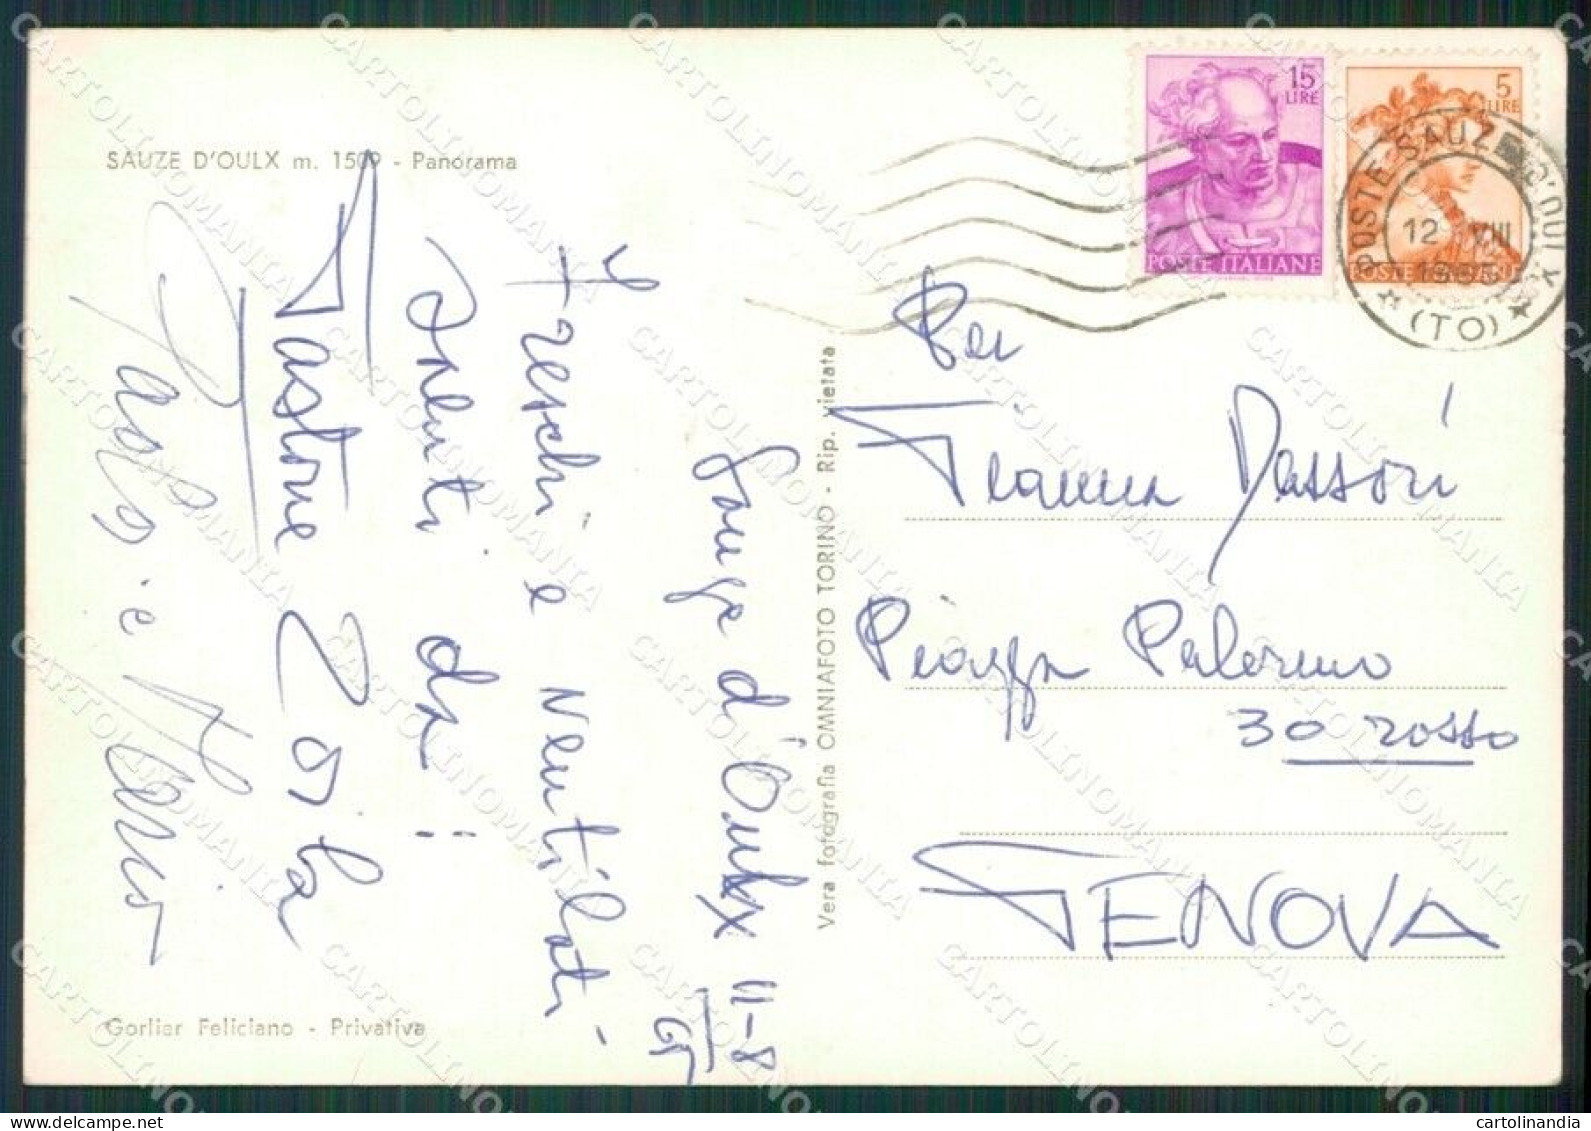 SAUZE D'OULX m. 1509 - Panorama
Sauze d'Oulx 11-8
65
Freschi e ventilati
saluti da:
Gastone Zoila
Paolo e
Gorlier Feliciano - Privativa
Vera fotografia OMNIAFOTO TORINO - Rip. vietata
15
LIRE
POSTE ITALIANE
5
LIRE
POSTE ITALIANE
POSTE SAUZE D'OULX
12 VIII
1965
(TO)
Per
Gianna Dassori
Piazza Palermo
30 rosso
GENOVA
CARTOLINOMANIA
cartolinandia